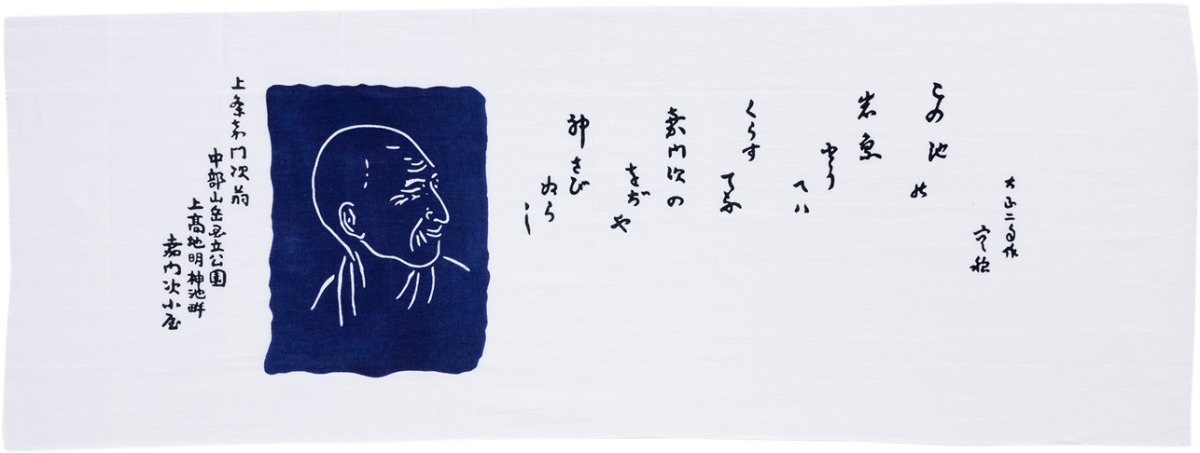 大正二年作
空穂
この池
の
岩魚
とり
てハ
くらす
てふ
嘉門次の
をぢや
神さび
ぬら
し
上条嘉門次翁
中部山岳国立公園
上髙地明神池畔
嘉門次小屋